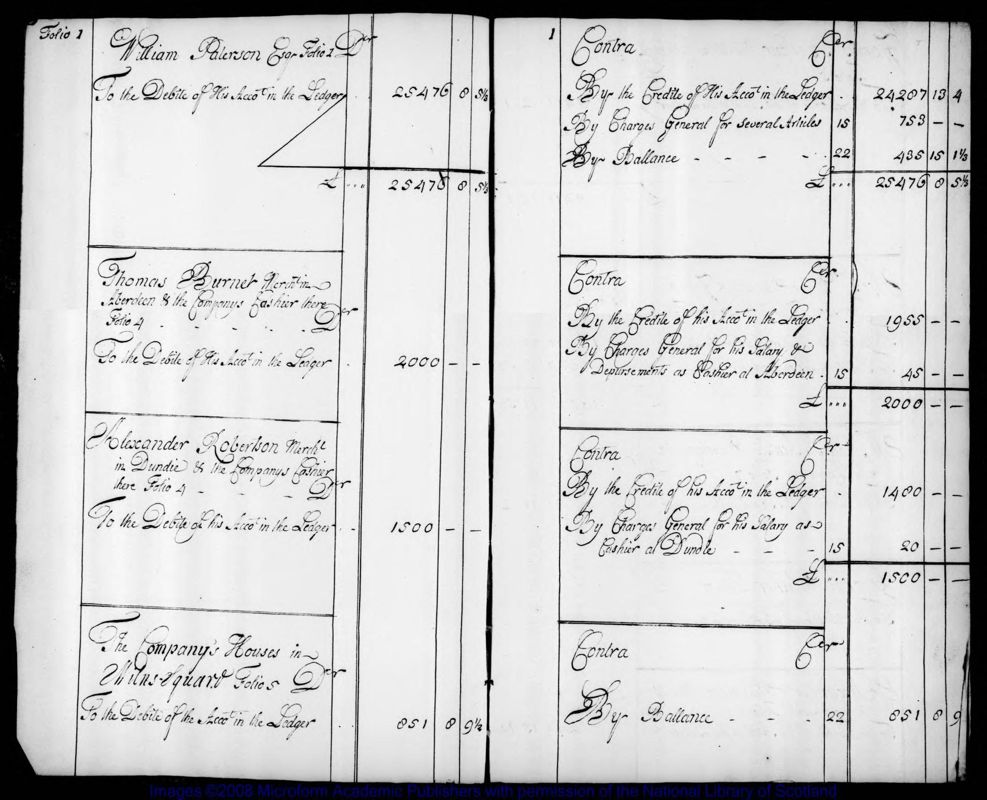 Folio 1
William Paterson Esqr Folio 1 Der
To the Debite of His Accot in the Ledger . 25476 8 5⅓
£ ... 25476 8 5⅓
Thomas Burnet Mercht in
Aberdeen & the Companys Cashier there
Folio 4 - - - - - Der
To the Debite of His Accot in the Ledger . 2000 — —
Alexander Robertson Mercht
in Dundie & the Companys Cashier
there Folio 4 - - - - Der
To the Debite of his Accot in the Ledger . 1500 — —
The Company's Houses in
Milns-Square Folio 5 Der
To the Debite of the Accot in the Ledger . . 851 8 9½
1
Contra Cer
By the Credite of His Accot in the Ledger . 24287 13 4
By Charges General for several Articles 15 753 — —
By Ballance - - - - . 22 435 15 1⅓
£ ... 25476 8 5⅓
Contra Cer
By the Credite of his Accot in the Ledger . 1955 — —
By Charges General for his Salary &
Depursements as Cashier at Aberdeen . 15 45 — —
£ ... 2000 — —
Contra Cer
By the Credite of his Accot in the Ledger . 1480 — —
By Charges General for his Salary as
Cashier at Dundie - - - 15 20 — —
£ ... 1500 — —
Contra Cer
By Ballance - - - - 22 851 8 9
Images ©2008 Microform Academic Publishers with permission of the National Library of Scotland